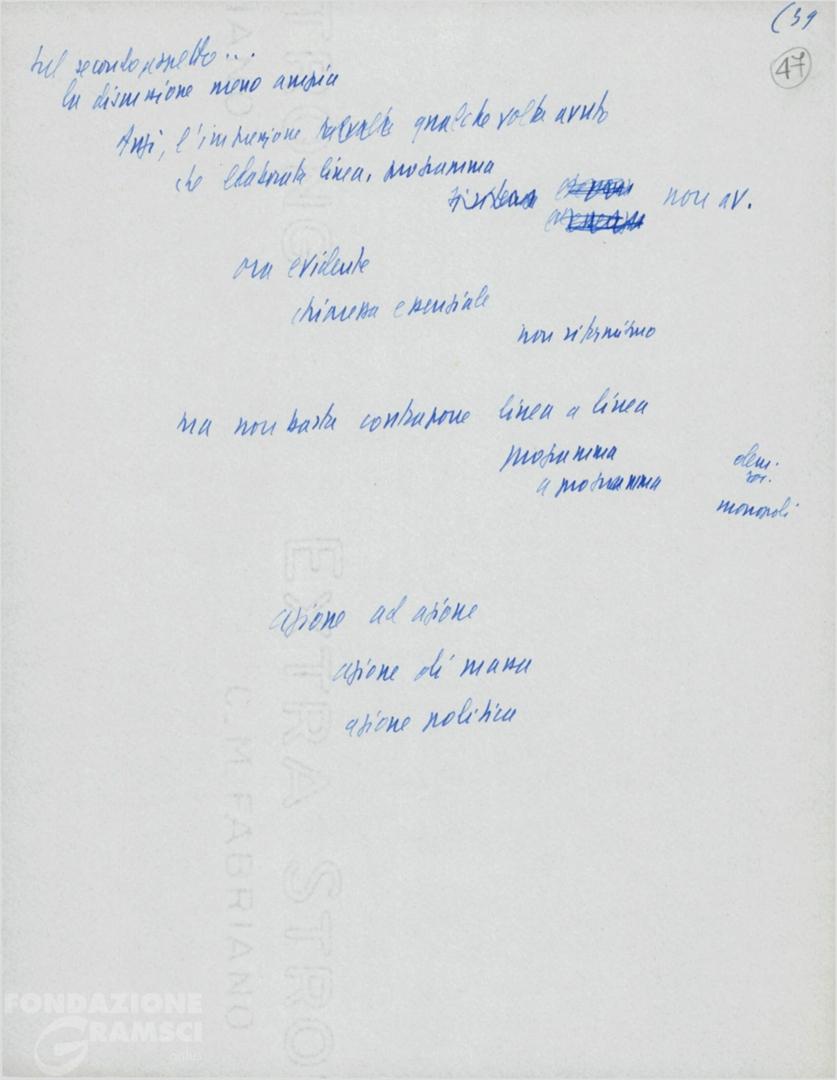 (39
47
sul secondo aspetto...
la discussione meno ampia
Anzi, l'impressione qualche volta avuto
che elaborata linea, programma
non av.
ora evidente
chiarezza essenziale
non riformismo
ma non basta contrapporre linea a linea
programma
a programma
dem.
monopoli
azione ad azione
azione di massa
azione politica
EXTRA STRONG
C.M.FABRIANO
FONDAZIONE
GRAMSCI
onlus